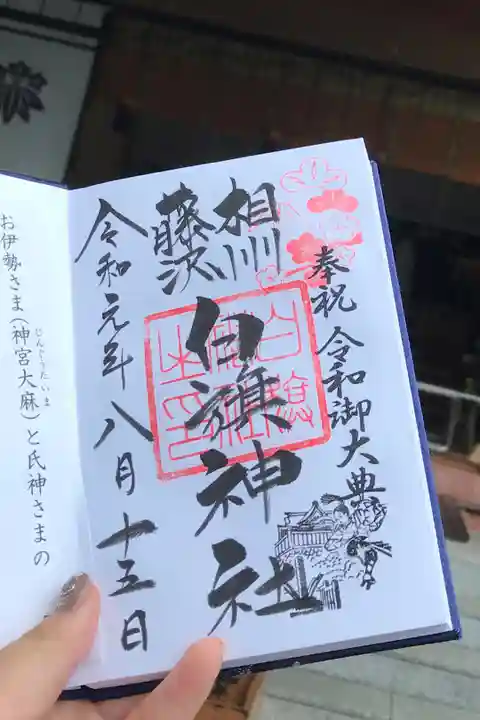 奉祝 令和御大典
相州
藤沢
白旗神社
令和元年八月十五日
白旗神社之印
お伊勢さま(神宮大麻)と氏神さまの
じんぐうたいま